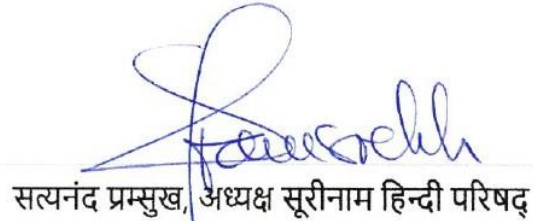 सत्यनंद प्रम्सुख, अध्यक्ष सूरीनाम हिन्दी परिषद्